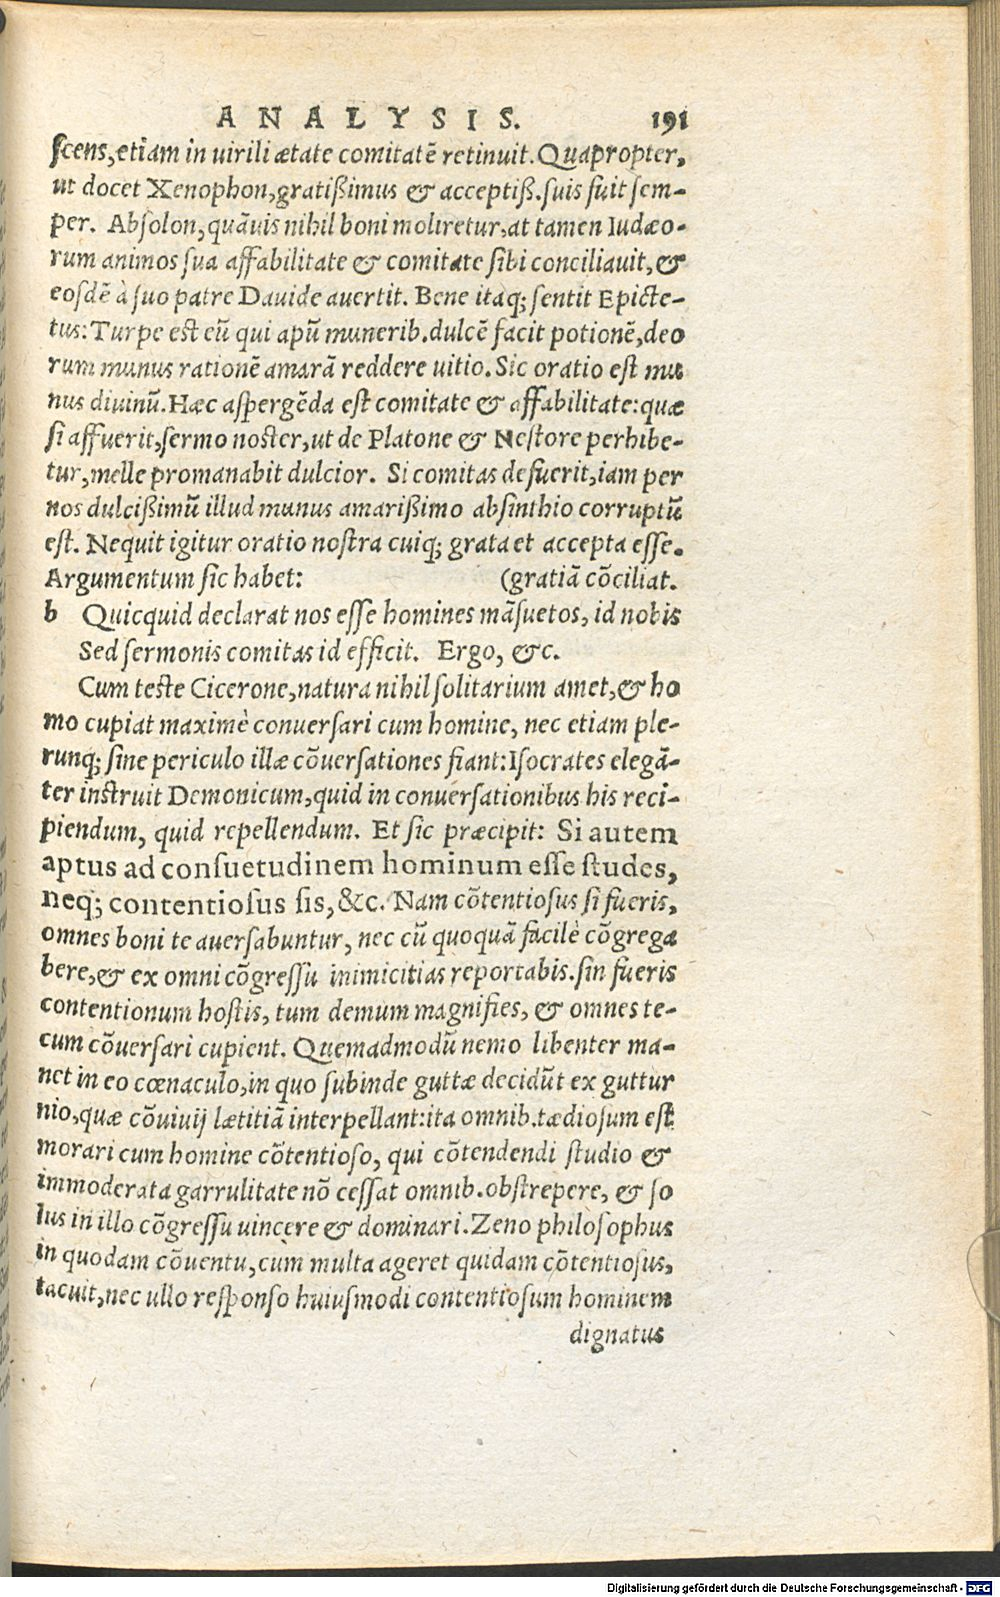 ANALYSIS. 191
scens, etiam in virili ætate comitatē retinuit. Quapropter,
ut docet Xenophon, gratißimus & acceptiß. suis fuit sem-
per. Absolon, quāuis nihil boni moliretur, at tamen Iudæo-
rum animos sua affabilitate & comitate sibi conciliauit, &
eosdē à suo patre Dauide auertit. Bene itaq; sentit Epicte-
tus: Turpe est eū qui apū munerib. dulcē facit potionē, deo
rum munus rationē amarā reddere uitio. Sic oratio est mu
nus diuinū. Hæc aspergēda est comitate & affabilitate: quæ
si affuerit, sermo noster, ut de Platone & Nestore perhibe-
tur, melle promanabit dulcior. Si comitas defuerit, iam per
nos dulcißimū illud munus amarißimo absinthio corruptū
est. Nequit igitur oratio nostra cuiq; grata et accepta esse.
Argumentum sic habet: (gratiā cōciliat.
b Quicquid declarat nos esse homines māsuetos, id nobis
Sed sermonis comitas id efficit. Ergo, &c.
Cum teste Cicerone, natura nihil solitarium amet, & ho
mo cupiat maximè conuersari cum homine, nec etiam ple-
runq; sine periculo illæ cōuersationes fiant: Isocrates elegā-
ter instruit Demonicum, quid in conuersationibus his reci-
piendum, quid repellendum. Et sic præcipit: Si autem
aptus ad consuetudinem hominum esse studes,
neq; contentiosus sis, &c. Nam cōtentiosus si fueris,
omnes boni te auersabuntur, nec cū quoquā facilè cōgrega
bere, & ex omni cōgressu inimicitias reportabis. sin fueris
contentionum hostis, tum demum magnifies, & omnes te-
cum cōuersari cupient. Quemadmodū nemo libenter ma-
net in eo cœnaculo, in quo subinde guttæ decidūt ex guttur
nio, quæ cōuiuij lætitiā interpellant: ita omnib. tædiosum est
morari cum homine cōtentioso, qui cōtendendi studio &
immoderata garrulitate nō cessat omnib. obstrepere, & so
lus in illo cōgressu uincere & dominari. Zeno philosophus
in quodam cōuentu, cum multa ageret quidam cōtentiosus,
tacuit, nec ullo responso huiusmodi contentiosum hominem
dignatus
Digitalisierung gefördert durch die Deutsche Forschungsgemeinschaft - DFG